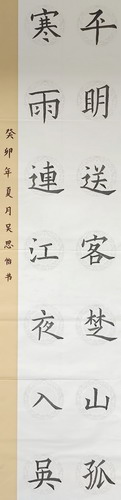 平明送客楚山孤
寒雨連江夜入吳
癸卯年夏月吳思怡书